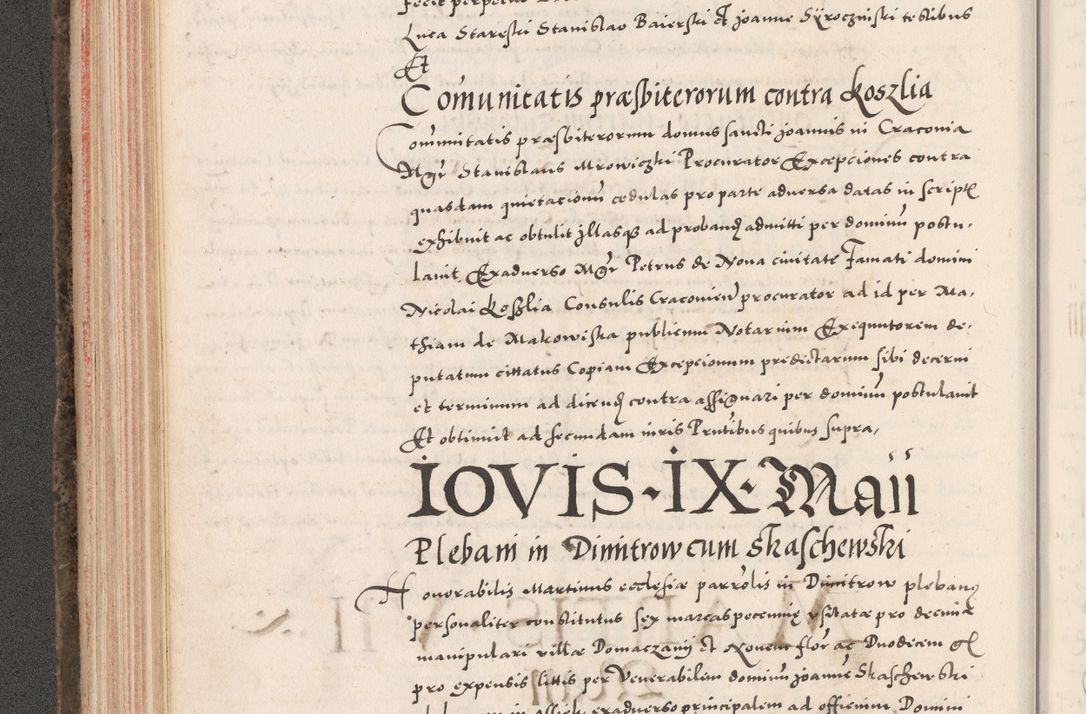 Luca Staręski Stanislao Baierski et joanne Syroczniski testibus
Et
Comunitatis præsbiterorum contra Koszlia
Comunitatis præsbiterorum domus sancti joannis in Craconia
Mgr Stanislaus Mrowiczki Procurator Excepciones contra
quasdam quietacionu cedulas pro parte adversa datas in script
exhibuit ac obtulit jllasq ad proband admitti per dominu postu-
lavit Exadverso Mgr Petrus de Nova civitate Famati domini
Nicolai Koszlia Consulis Cracovien procurator ad id per Ma-
thiam de Makowiska publicum Notarium Exequutorem de-
putatum cittatus Copiam Excepcionum predictarum sibi decerni
et terminum ad dicend contra assignari per dominu postulavit
Et obtinuit ad secundam iuris Prntibus quibus supra,
IOVIS · IX · Maii
Plebani in Dimitrow cum Skaschewski
Honorabilis Martinus ecclesiæ parrolis in Dimitrow plebanus
personaliter constitutus sex marcas pecuniæ usitatæ pro decima
manipulari villæ Domaczanij et Novem flor ac Duodecem gl
pro expensis littis per Venerabilem dominu joanne Skaschewski
exadverso principalem ad officium Domini